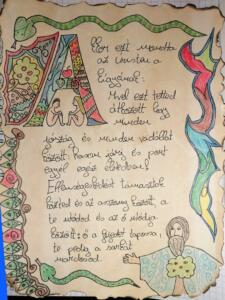 Akkor ezt mondta
az Úristen a
kígyónak:
Mivel ezt tetted
átkozott légy
minden
jószág és minden vadállat
között hason járj és port
egyél egész életedben!
Ellenségeskedést támasztok
közted és az asszony között, a
te utódod és az ő utódja
között: ő a fejedet tapossa,
te pedig a sarkát
mardosod.